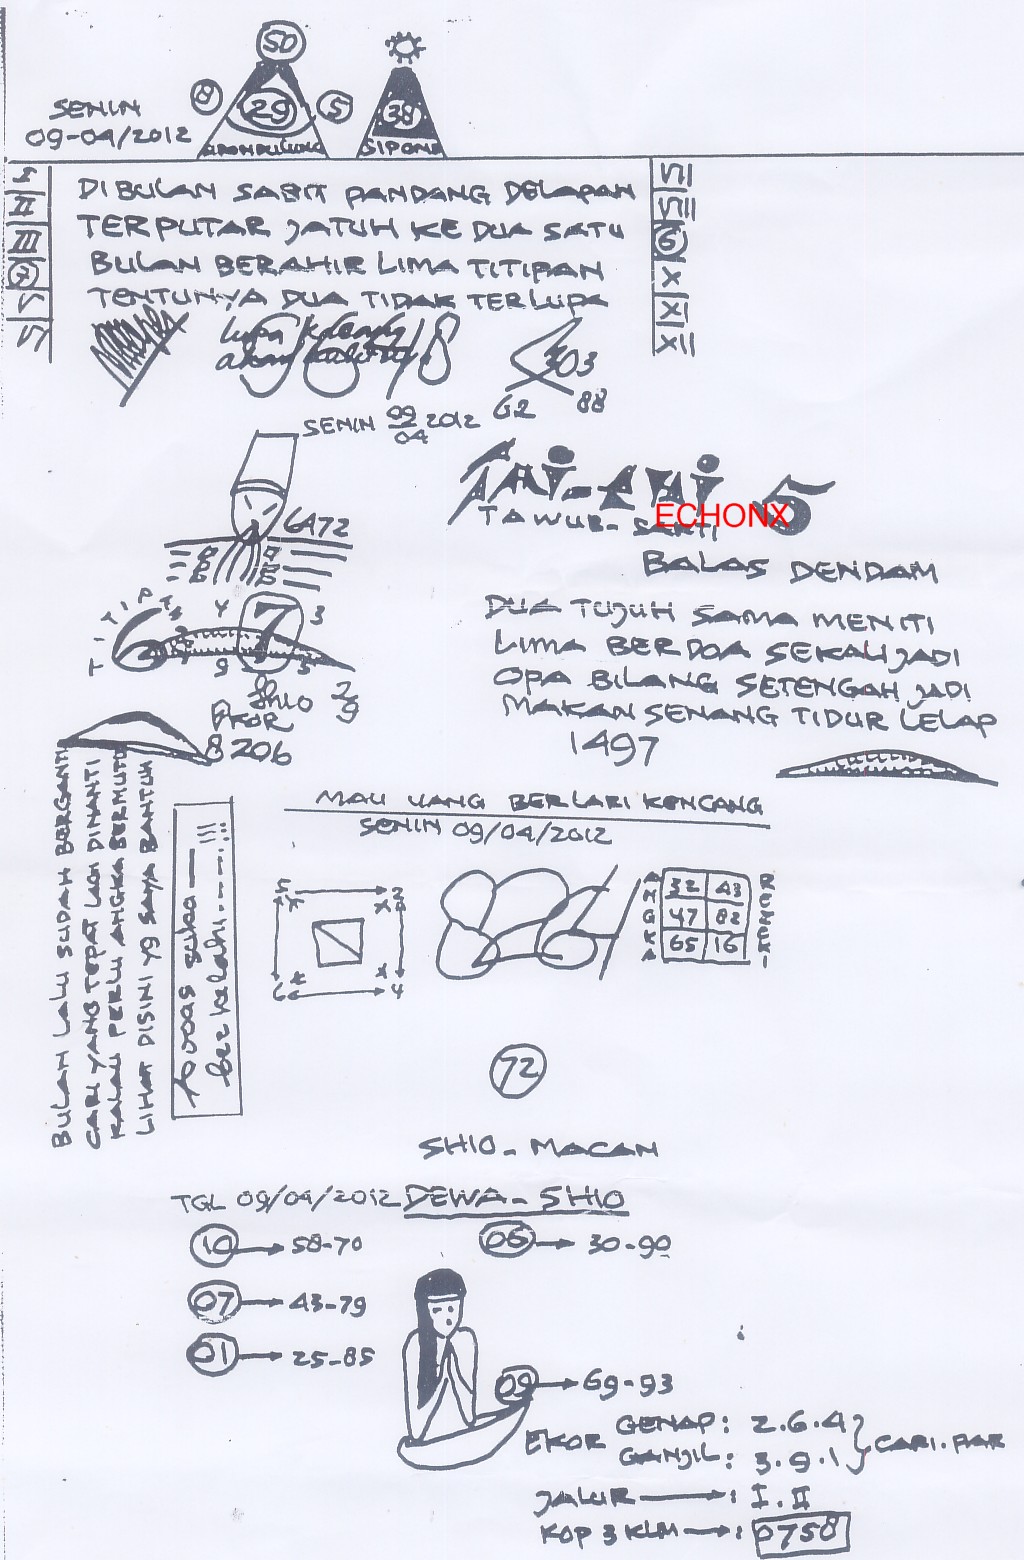 50
8
29
5
38
SENIN
09-04/2012
SIPOND
DI BULAN SABIT PANDANG DELAPAN
TERPUTAR JATUH KE DUA SATU
BULAN BERAHIR LIMA TITIPAN
TENTUNYA DUA TIDAK TERLUPA
II
III
VII
VIII
6
X
XI
XII
303
62
88
SENIN 09/04 2012
6472
5
TAWUR- SAKTI
ECHONX
BALAS DENDAM
T I T I P
4
7
3
9
5
DUA TUJUH SAMA MENITI
LIMA BERDOA SEKALI JADI
OPA BILANG SETENGAH JADI
MAKAN SENANG TIDUR LELAP
1497
Shio 2/9
EKOR
8206
BULAN LALU SUDAH BERGANTI
CARI YANG TEPAT LAGI DINANTI
KALAU PERLU ANGKA BERMUTU
LIHAT DISINI YG SAYA BANTUH
suka
berkelahi
MAU UANG BERLARI KENCANG
SENIN 09/04/2012
6
4
ANGKA
32 43
47 82
65 16
72
SHIO - MACAN
TGL 09/04/2012 DEWA - SHIO
10 → 58-70
06 → 30-90
07 → 43-79
01 → 25-85
09 → 69-93
EKOR GENAP: 2.6.4
GANJIL: 3.9.1
CARI.PAR
JALUR → : I.II
KOP 3 KLM → : 0758